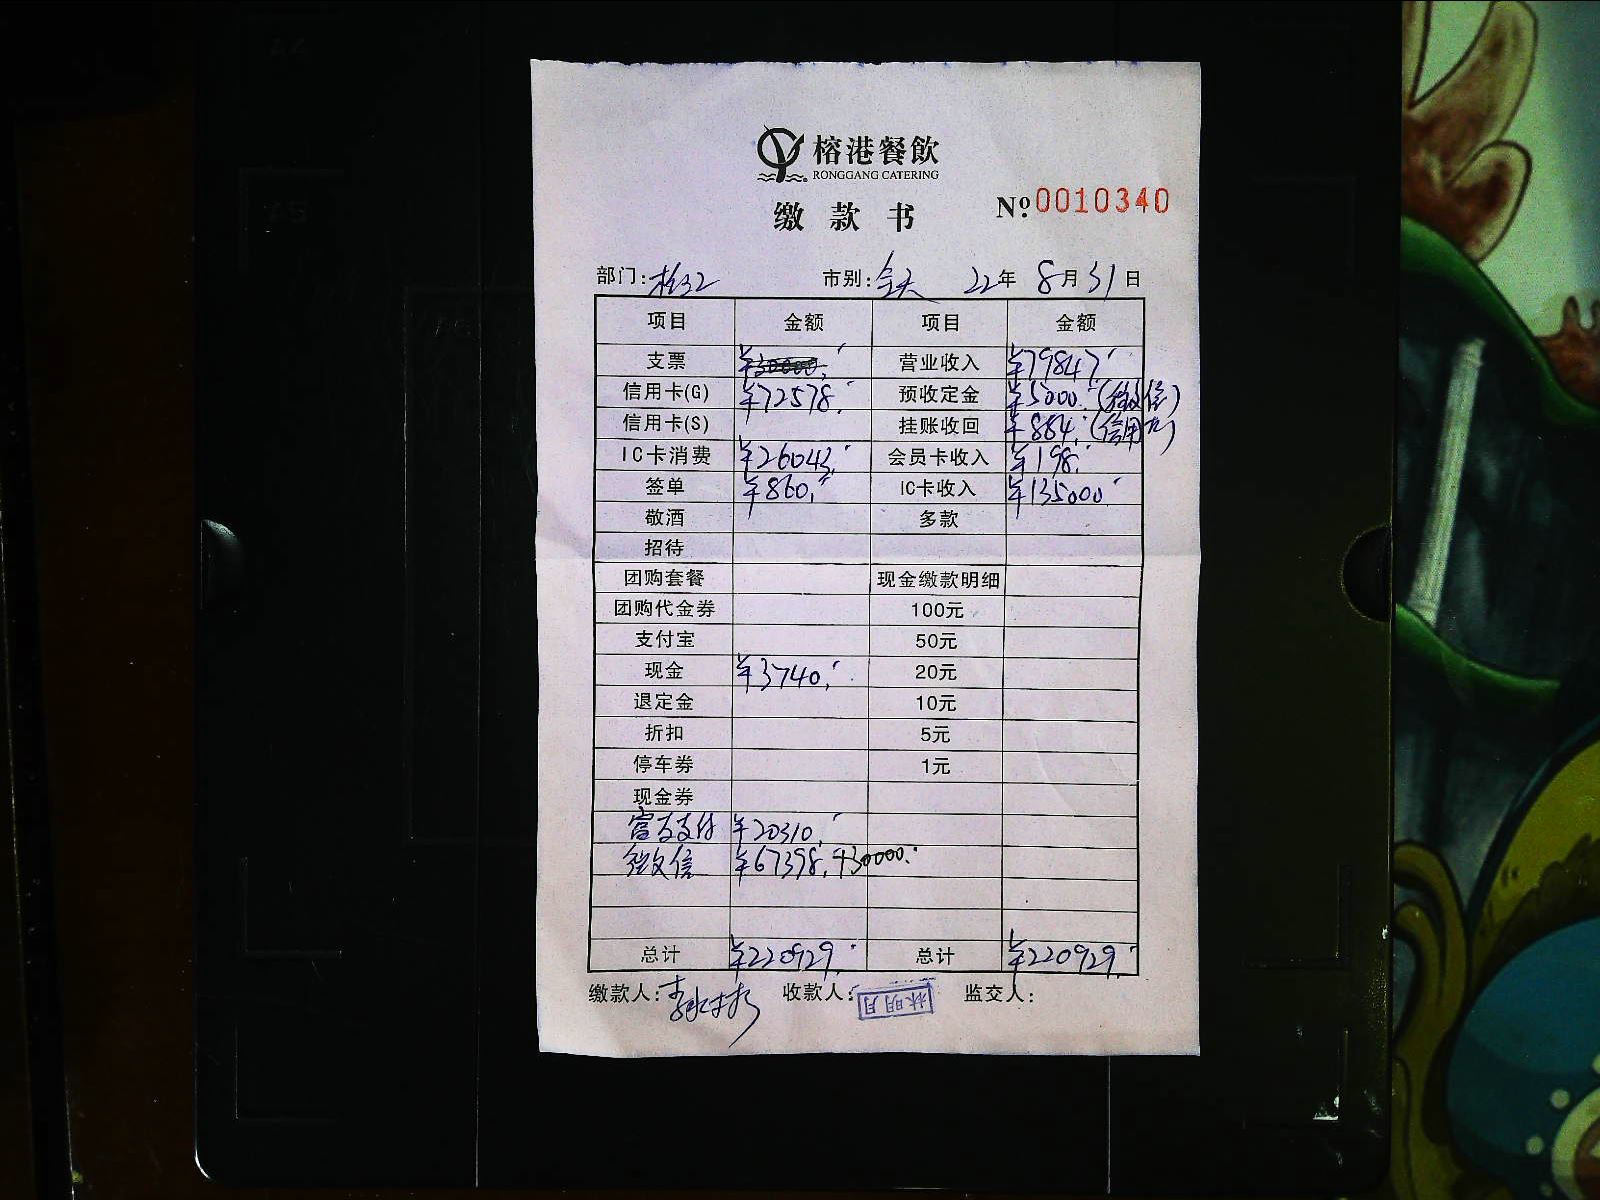 榕港餐飲
RONGGANG CATERING
缴款书
№ 0010340
部门: 市别:全天 22年 8月31日
项目 金额 项目 金额
支票 ¥30000. 营业收入 ¥79847.
信用卡(G) ¥72578. 预收定金 ¥5000.(微信)
信用卡(S) 挂账收回 ¥884.(信用卡)
IC卡消费 ¥26043. 会员卡收入 ¥198.
签单 ¥860. IC卡收入 ¥135000.
敬酒 多款
招待
团购套餐 现金缴款明细
团购代金券 100元
支付宝 50元
现金 ¥3740. 20元
退定金 10元
折扣 5元
停车券 1元
现金券
富友支付 ¥20310.
微信 ¥67398.+30000.
总计 ¥220929. 总计 ¥220929.
缴款人: 收款人:林明月 监交人: